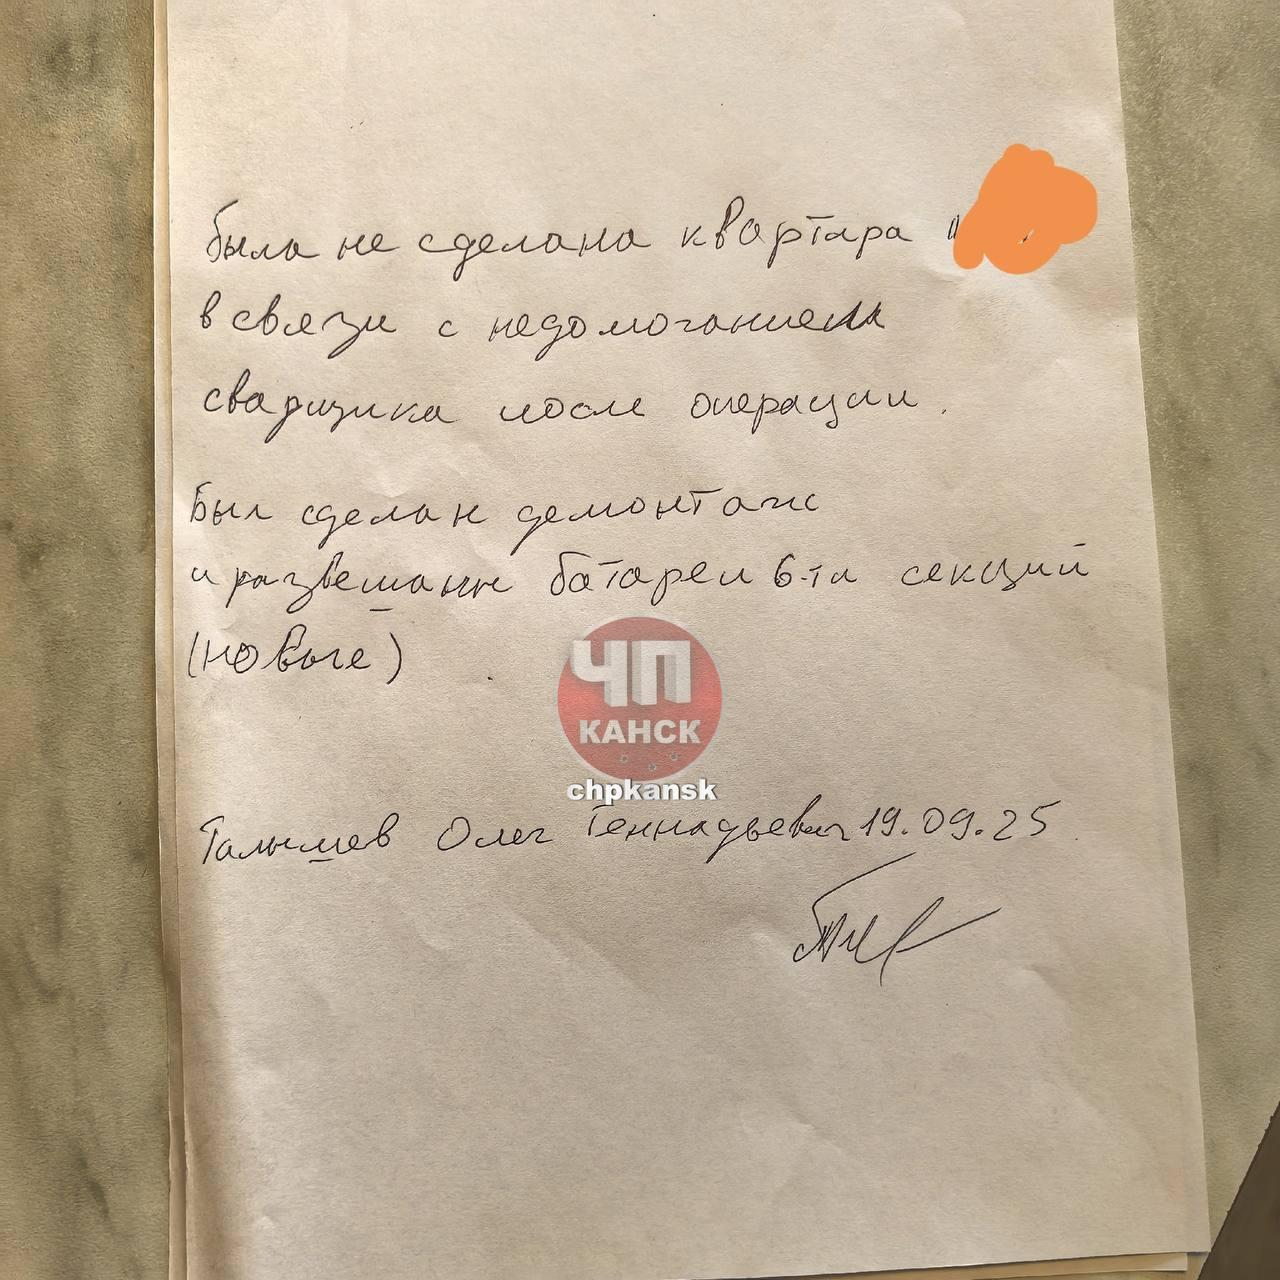 была не сделана квартира
в связи с недомоганием
сварщика после операции.
Был сделан демонтаж
и развешанн батареи 6-ти секций
(новые)
ЧП
КАНСК
chpkansk
Талышев Олег Геннадьевич 19.09.25